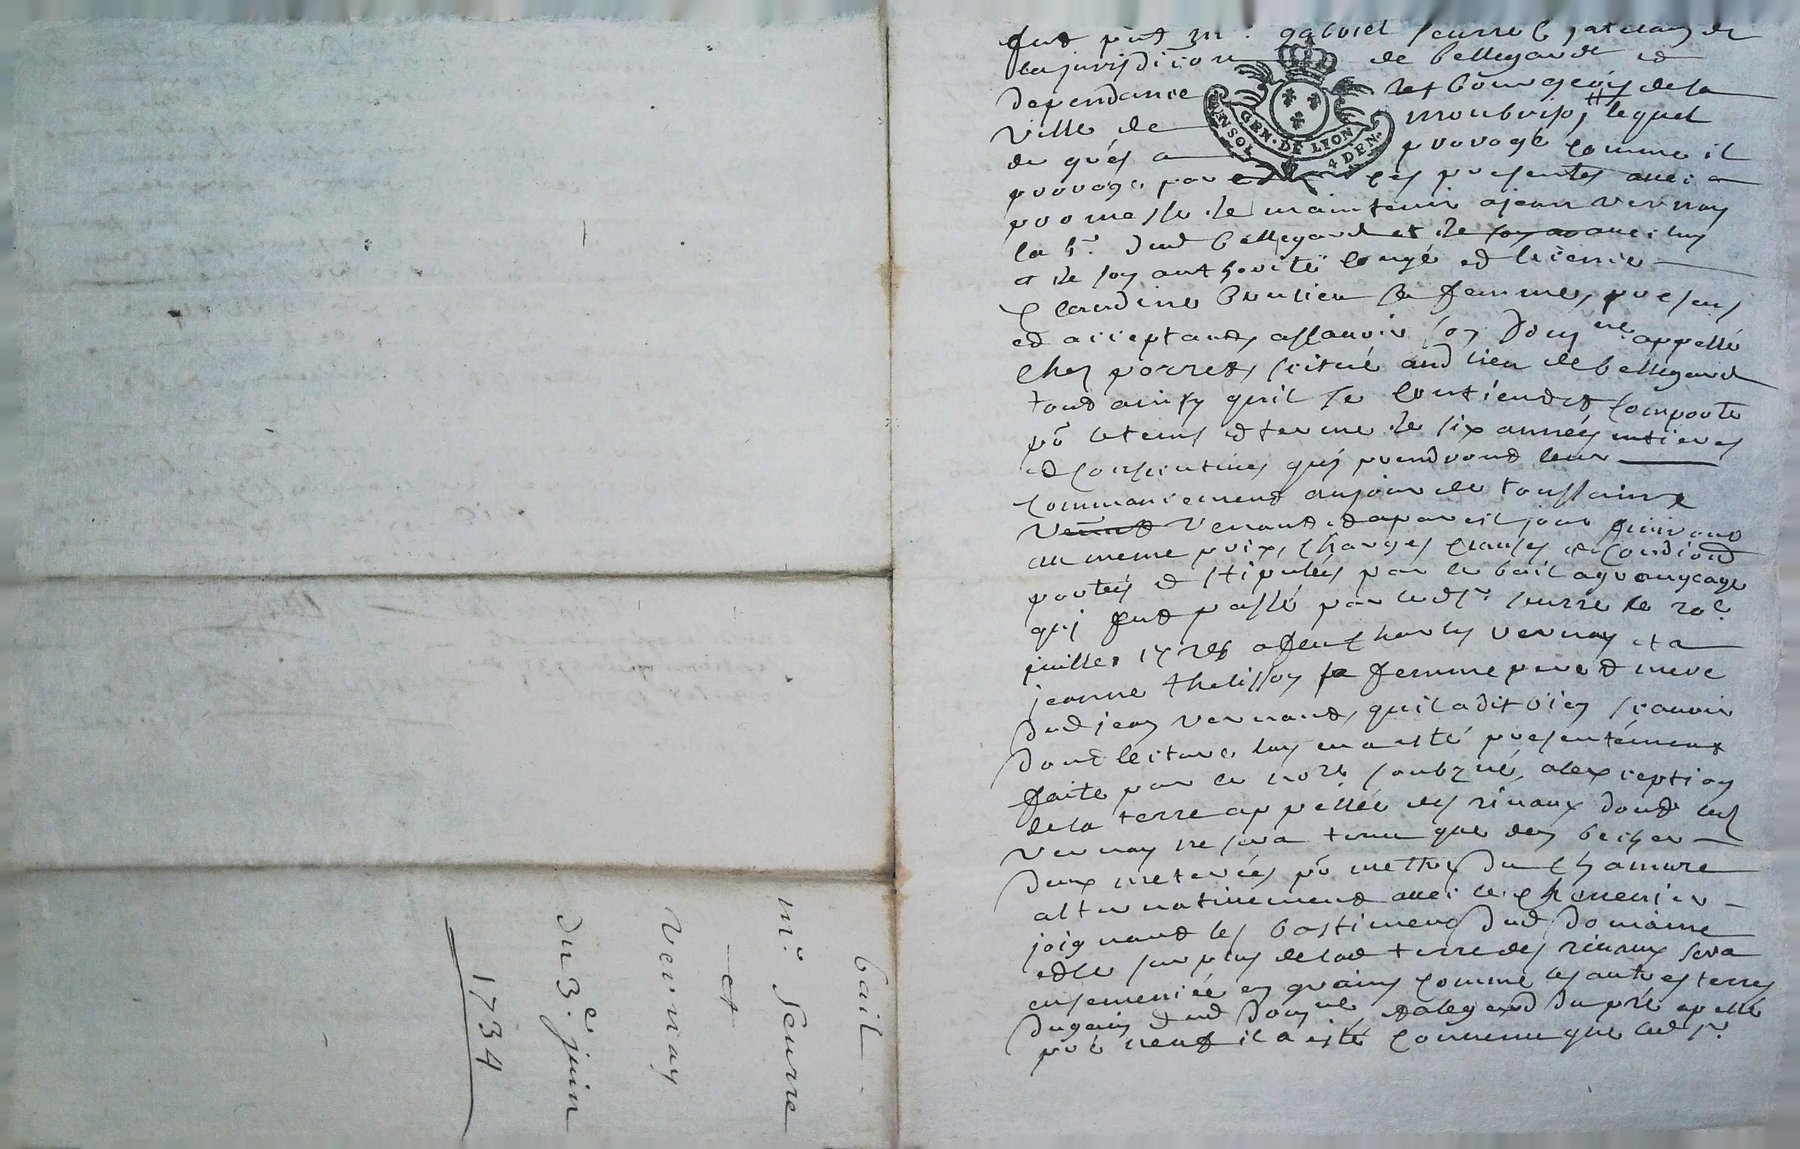 bail
mc. Seurre
et
Vernay
Du 3e. juin
1734
fut pnt mr. gabriel Seurre chatelain de
la jurisdicion de bellegarde et
dependance et bourgeois de la
ville de montbrison, lequel
de grés a prorogé comme il
proroge par ces presentes avec
promesse de maintenir a jean vernay
dud bellegarde et de avec luy
et de son authorité congé et licence
Claudine sa femme, presens
et acceptants, assavoir son Domne appellé
chez porret, scitué aud lieu de bellegarde
tout ainsy quil se contient et comporte
pr le tems et terme de six années entieres
et consecutives qui prendront leur
commancement au jour de toussaint
venant et a pareil jour finiront
au meme prix, charges clauses et condions
portés et stipulés par le bail a grangeage
qui fut passé par led sr. Seurre le
juillet a feu Charles vernay et a
jeanne thelisson sa femme pere et mere
Dud jean vernand, quil a dit bien scavoir
Dont lecture luy en a esté presentement
faite par le nore soubzné, a lexception
de la terre appellée des rivaux dont led
vernay ne sera tenu que den becher
Deux meterées pr mettre Du chamvre
alternativement avec le chenevier
joignant les bastiments dud domaine
et le surplus de lad terre des rivaux sera
ensemencée en grains comme les autres terres
dud Domne, a legard du pré apellé
pré neuf il a esté convenu que led sr.
GEN. DE LYON
4 DEN.